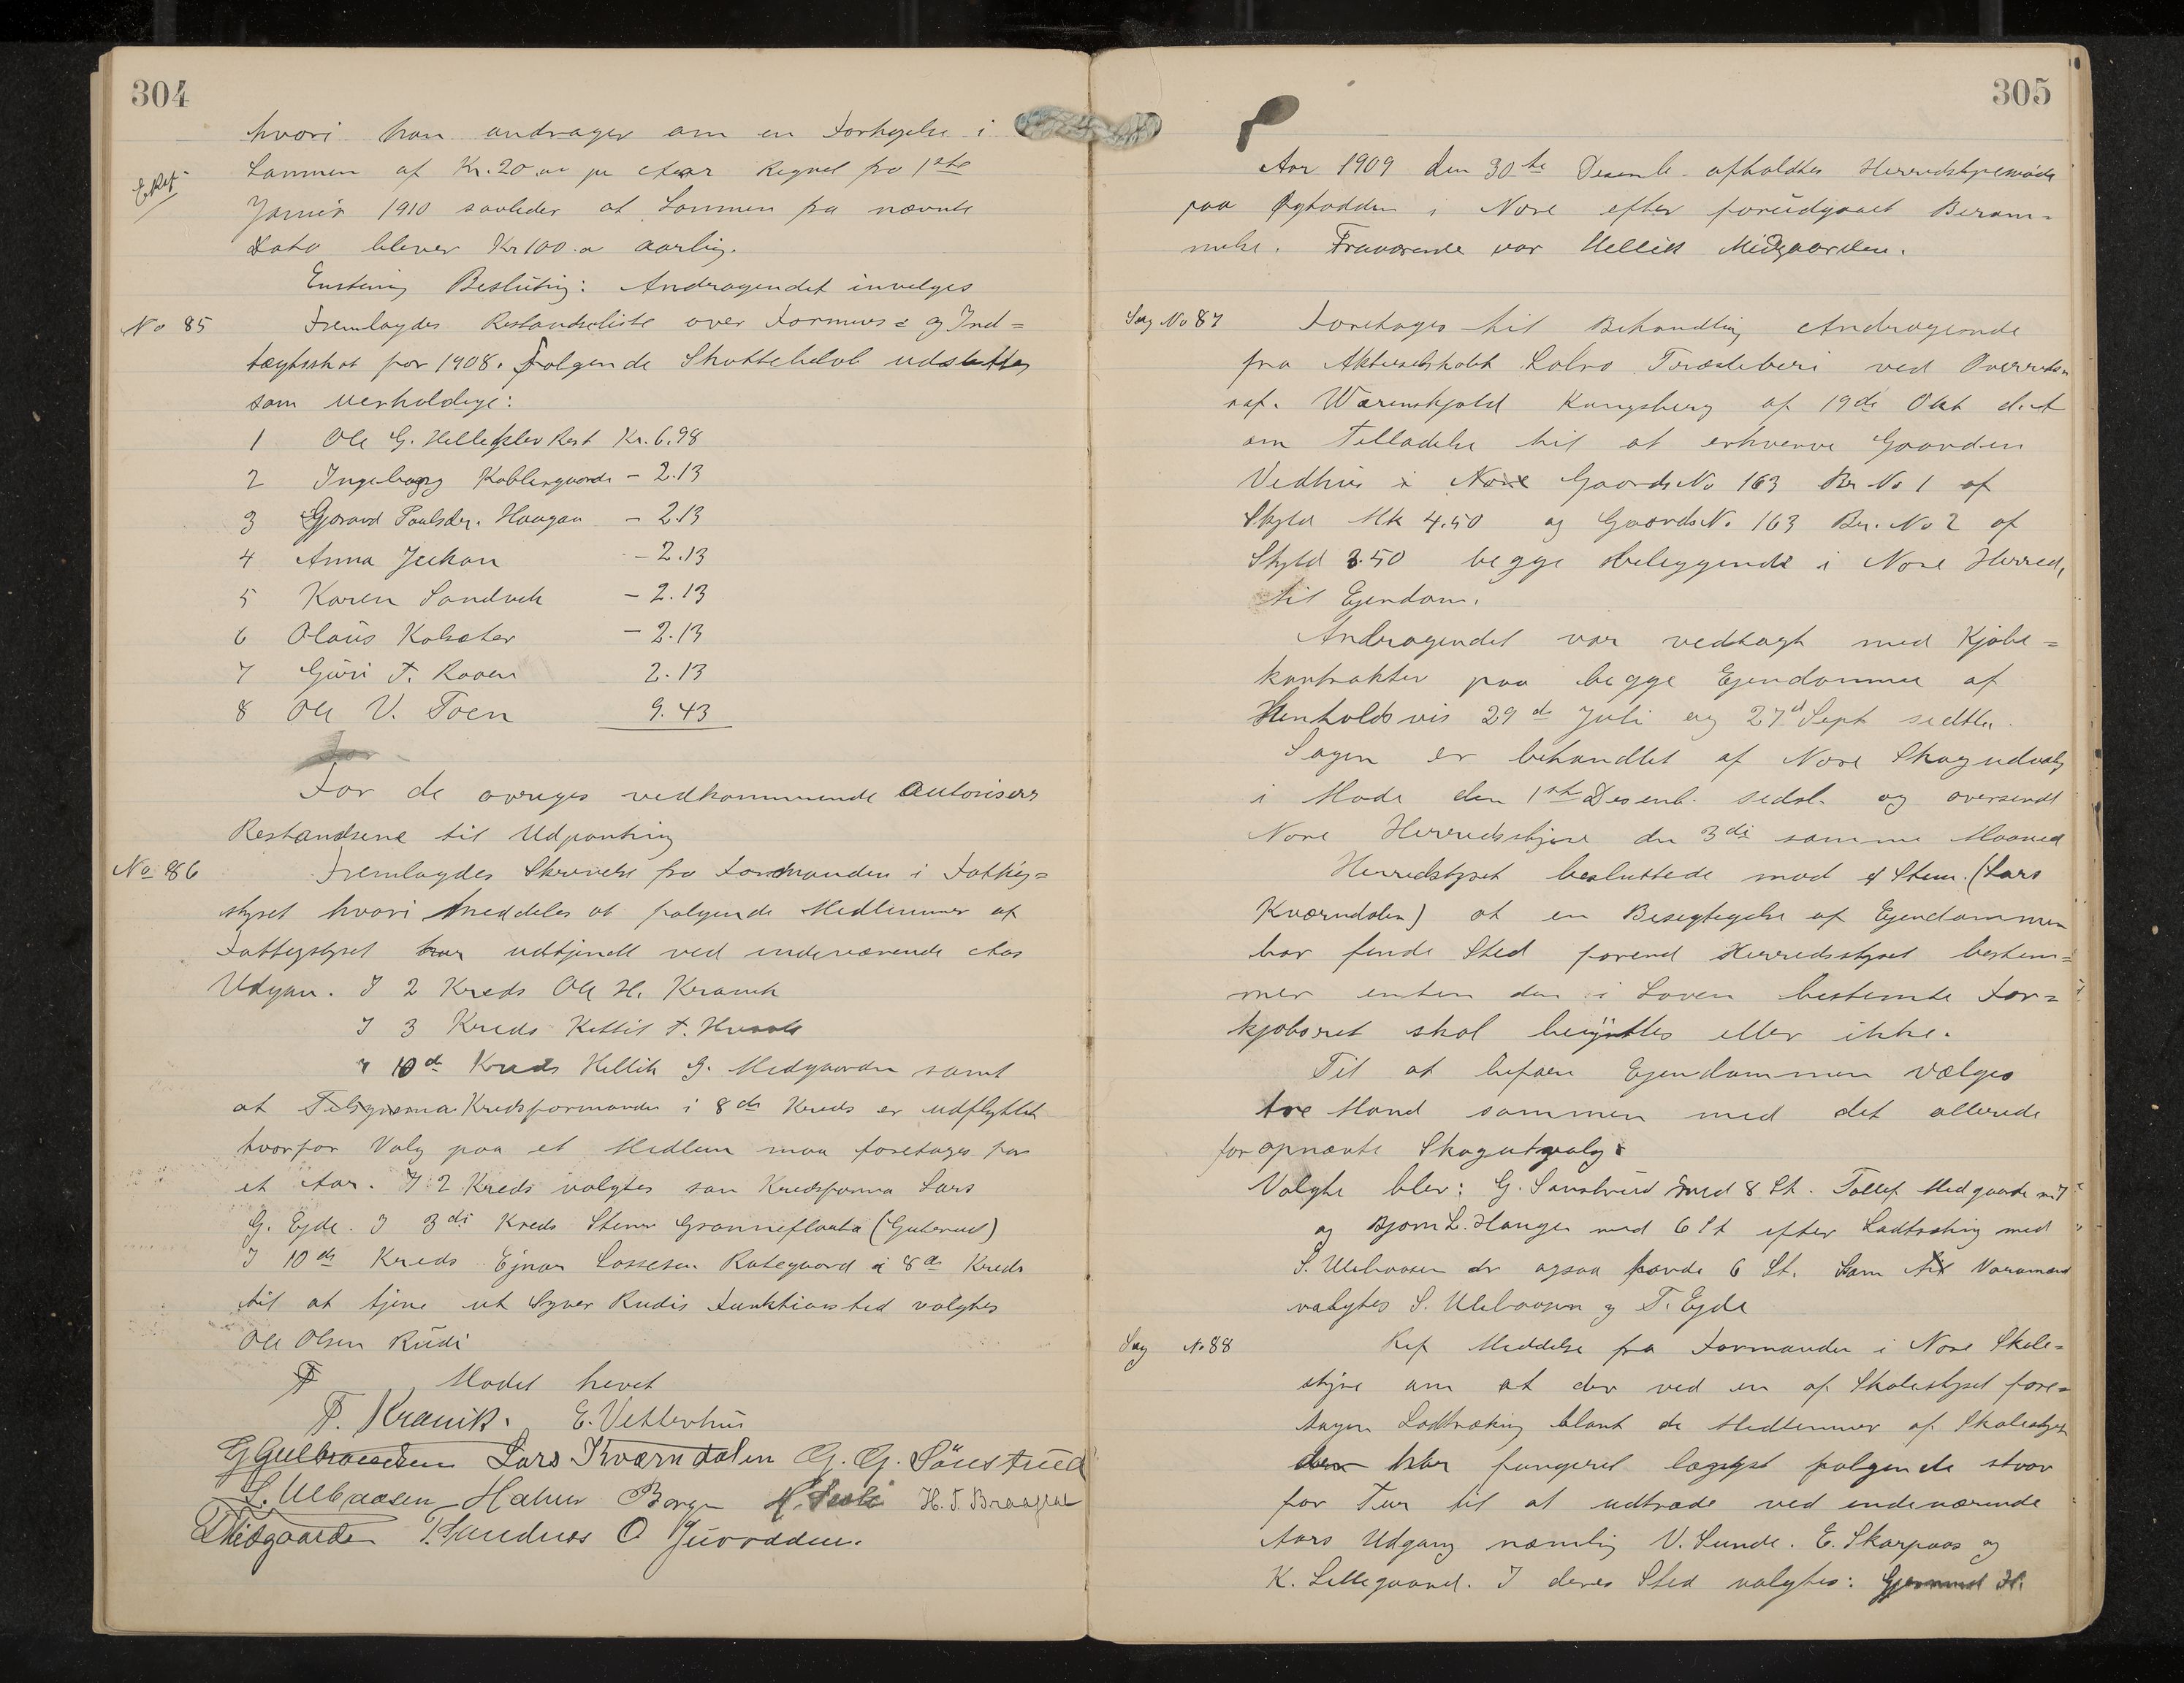 304
hvori han andrager om en Forhøyelse i
E. Ref.
Lønnen af Kr. 20.00 pr Aar Regnet fra 1ste
Januar 1910 saaledes at Lønnen fra nævnte
Dato bliver Kr 100.00 aarlig.
Enstemig Beslutning: Andragendet invilges
No 85 Fremlagdes Restanseliste over Formues= og Ind=
tægtsskat for 1908. Følgende Skattebeløb udsættes
som uerholdige:
1 Ole G. Hellehslev Rest Kr. 6.98
2 Ingeborg Koblergaarde - 2.13
3 Gjøran Paulsdr. Haugan - 2.13
4 Anna Juhan - 2.13
5 Karen Sandvik - 2.13
6 Olaus Kolsæter - 2.13
7 Guri T. Raaen 2.13
8 Ole V. Toen 9.43
For
For de øvriges vedkommende autoriseres
Restanserne til Udpanting
No 86 Fremlagdes Skrivelse fra Formanden i Fattig=
styret hvori meddeles at følgende Medlemmer af
Fattigstyret har udtjendt ved indeværende Aars
Udgan. I 2 Kreds Ole H. Kravik
I 3 Kreds Kittil T.
" 10de Kreds Hellik G. Midgaarden samt
at Kredsformanden i 8de Kreds er udflyttet
hvorfor Valg paa et Medlem maa foretages for
et Aar. I 2 Kreds valgtes som Kredsforma Lars
G. Eyde. I 3die Kreds Stener Grønneflaata (Guterud)
I 10de Kreds Ejnar Lossesen Rutegaard i 8de Kreds
til at tjene ut Syver Rudis Funktionstid valgtes
Ole Olsen Rudi
T Mødet hevet
T. Kravik. E. Vetterhus
G Gulbrandsen Lars Kværndalen G. G. Sönsterud
S. Ulbaasen Halvor Borge H. T. Braaflat
T Midgaarden T. Sandnes O Juvodden.
305
Aar 1909 den 30te Desemb. afholdtes Herredstyremøde
paa Øgtodden i Nore efter forudgaaet Beram=
melse. Fraværende var Hellik Midgaarden.
Sag No 87 Foretages til Behandling Andragende
fra Aktieselskabet Labro Træsliberi ved Overrets=
saf. Wærenskjold Kongsberg af 19de Okt d.A
om Tilladelse til at erhverve Gaarden
Vedhus i Nore Gaards No 163 Br No 1 af
Skyld Mk 4.50 og Gaards No 163 Br. No 2 af
Skyld 3.50 begge beleggende i Nore Herred,
til Ejendom.
Andragendet var vedlagt med Kjøbe=
kontrakter paa begge Ejendomme af
Henholdsvis 29de Juli og 27d Sept sidstl.
Sagen er behandlet af Nore Skogudvalg
i Møde den 1ste Desemb. sidstl. og oversendt
Nore Herredsstyre den 3die samme Maaned
Herredstyret besluttede mod 1 Stem. (Lars
Kværndalen) at en Besigtigelse af Ejendommen
bør finde Sted førend Herredsstyret bestem=
mer enten den i Loven bestemte For=
kjøbsret skal benyttes eller ikke.
Til at befare Ejendommen vælges
tre Mand sammen med det allerede
for opnævnte Skogutvalg.
Valgte blev: G. Sønsterud med 8 St. Tollef Midgaarde m. 7
og Bjørn L. Haugen med 6 St efter Lodtrækning med
S. Ulebaasen der ogsaa havde 6 St. Som til Varamænd
valgtes S. Ulebaasen og T. Eyde
Sag No 88 Ref Meddelse fra Formanden i Nore Skole=
styre om at der ved en af Skolestyret fore=
tagen Lodtrækning blant de Medlemmer af Skolestyret
der har fungeret længst følgende stvor
for Tur til at udtræde ved indeværende
Aars Udgang nemlig V. Sunde. E. Skarpaas og
K. Lillegaard. I deres Sted valgtes: Gjermund H.